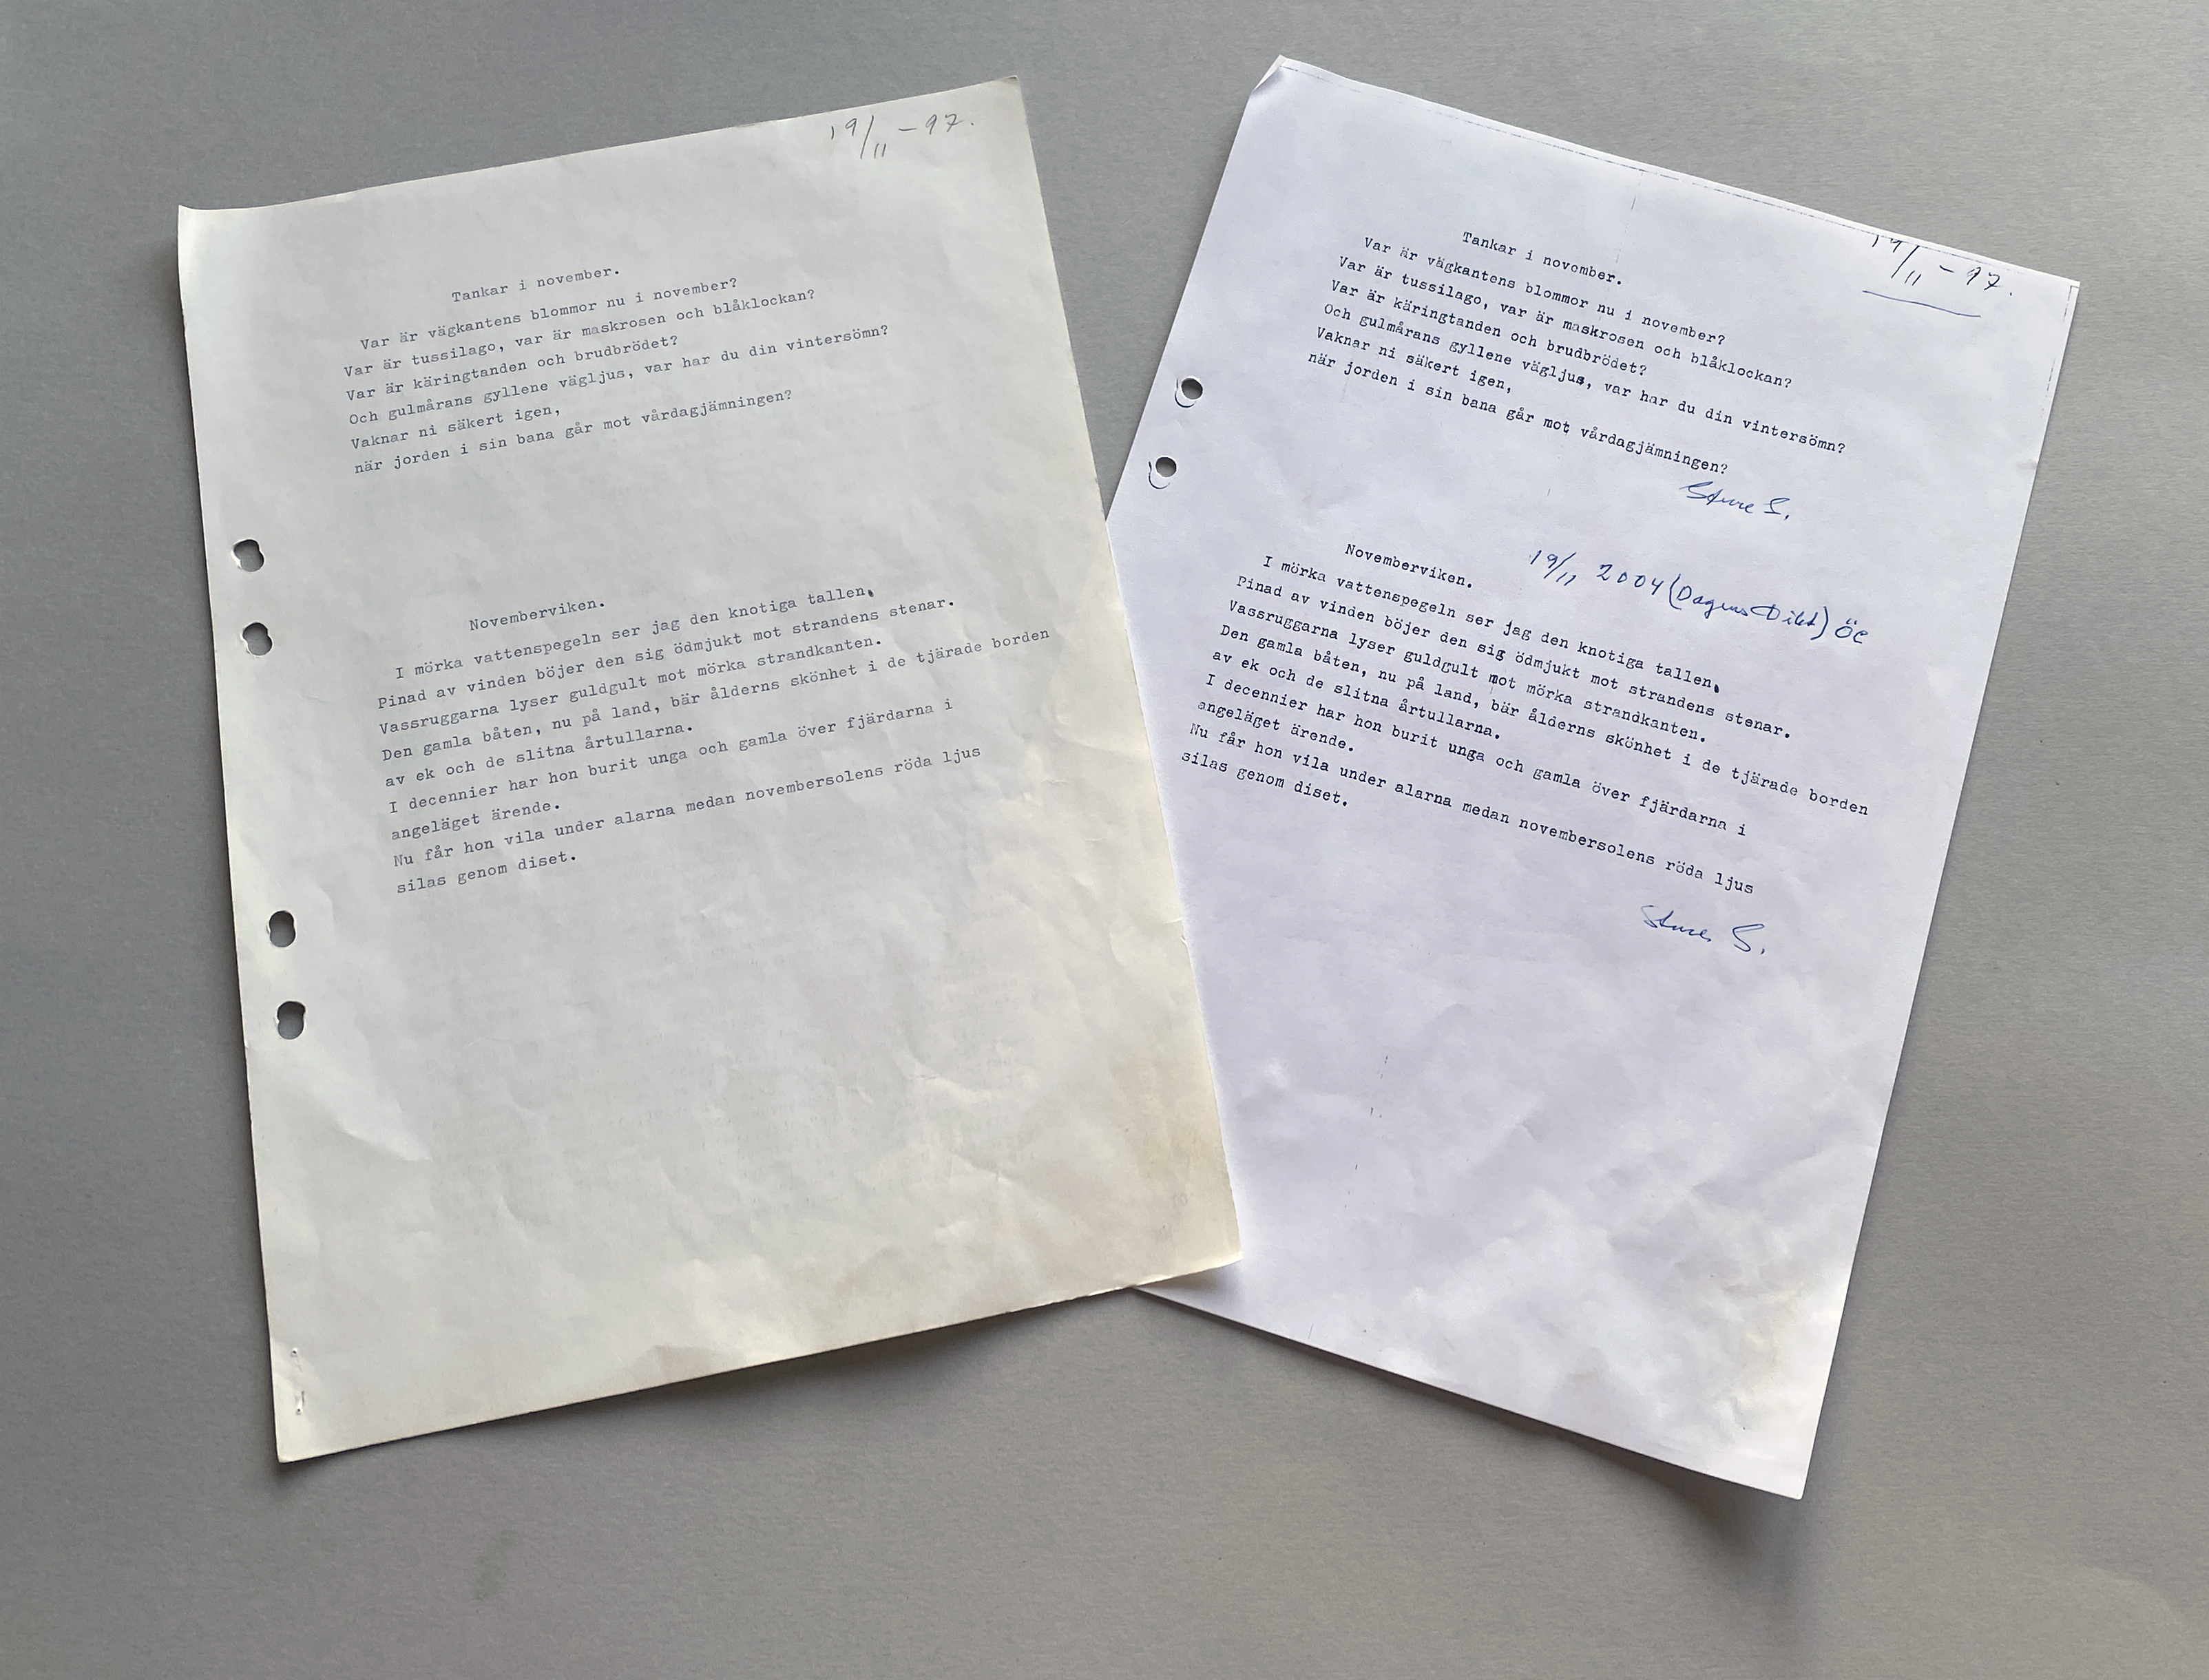 19/11 - 97.
Tankar i november.
Var är vägkantens blommor nu i november?
Var är tussilago, var är maskrosen och blåklockan?
Var är käringtanden och brudbrödet?
Och gulmårans gyllene vägljus, var har du din vintersömn?
Vaknar ni säkert igen,
när jorden i sin bana går mot vårdagjämningen?
Novemberviken.
I mörka vattenspegeln ser jag den knotiga tallen.
Pinad av vinden böjer den sig ödmjukt mot strandens stenar.
Vassruggarna lyser guldgult mot mörka strandkanten.
Den gamla båten, nu på land, bär ålderns skönhet i de tjärade borden
av ek och de slitna årtullarna.
I decennier har hon burit unga och gamla över fjärdarna i
angeläget ärende.
Nu får hon vila under alarna medan novembersolens röda ljus
silas genom diset.
19/11 - 97.
Tankar i november.
Var är vägkantens blommor nu i november?
Var är tussilago, var är maskrosen och blåklockan?
Var är käringtanden och brudbrödet?
Och gulmårans gyllene vägljus, var har du din vintersömn?
Vaknar ni säkert igen,
när jorden i sin bana går mot vårdagjämningen?
Sture S.
Novemberviken.
19/11 2004 (Dagens Dikt) ÖC
I mörka vattenspegeln ser jag den knotiga tallen.
Pinad av vinden böjer den sig ödmjukt mot strandens stenar.
Vassruggarna lyser guldgult mot mörka strandkanten.
Den gamla båten, nu på land, bär ålderns skönhet i de tjärade borden
av ek och de slitna årtullarna.
I decennier har hon burit unga och gamla över fjärdarna i
angeläget ärende.
Nu får hon vila under alarna medan novembersolens röda ljus
silas genom diset.
Sture S.